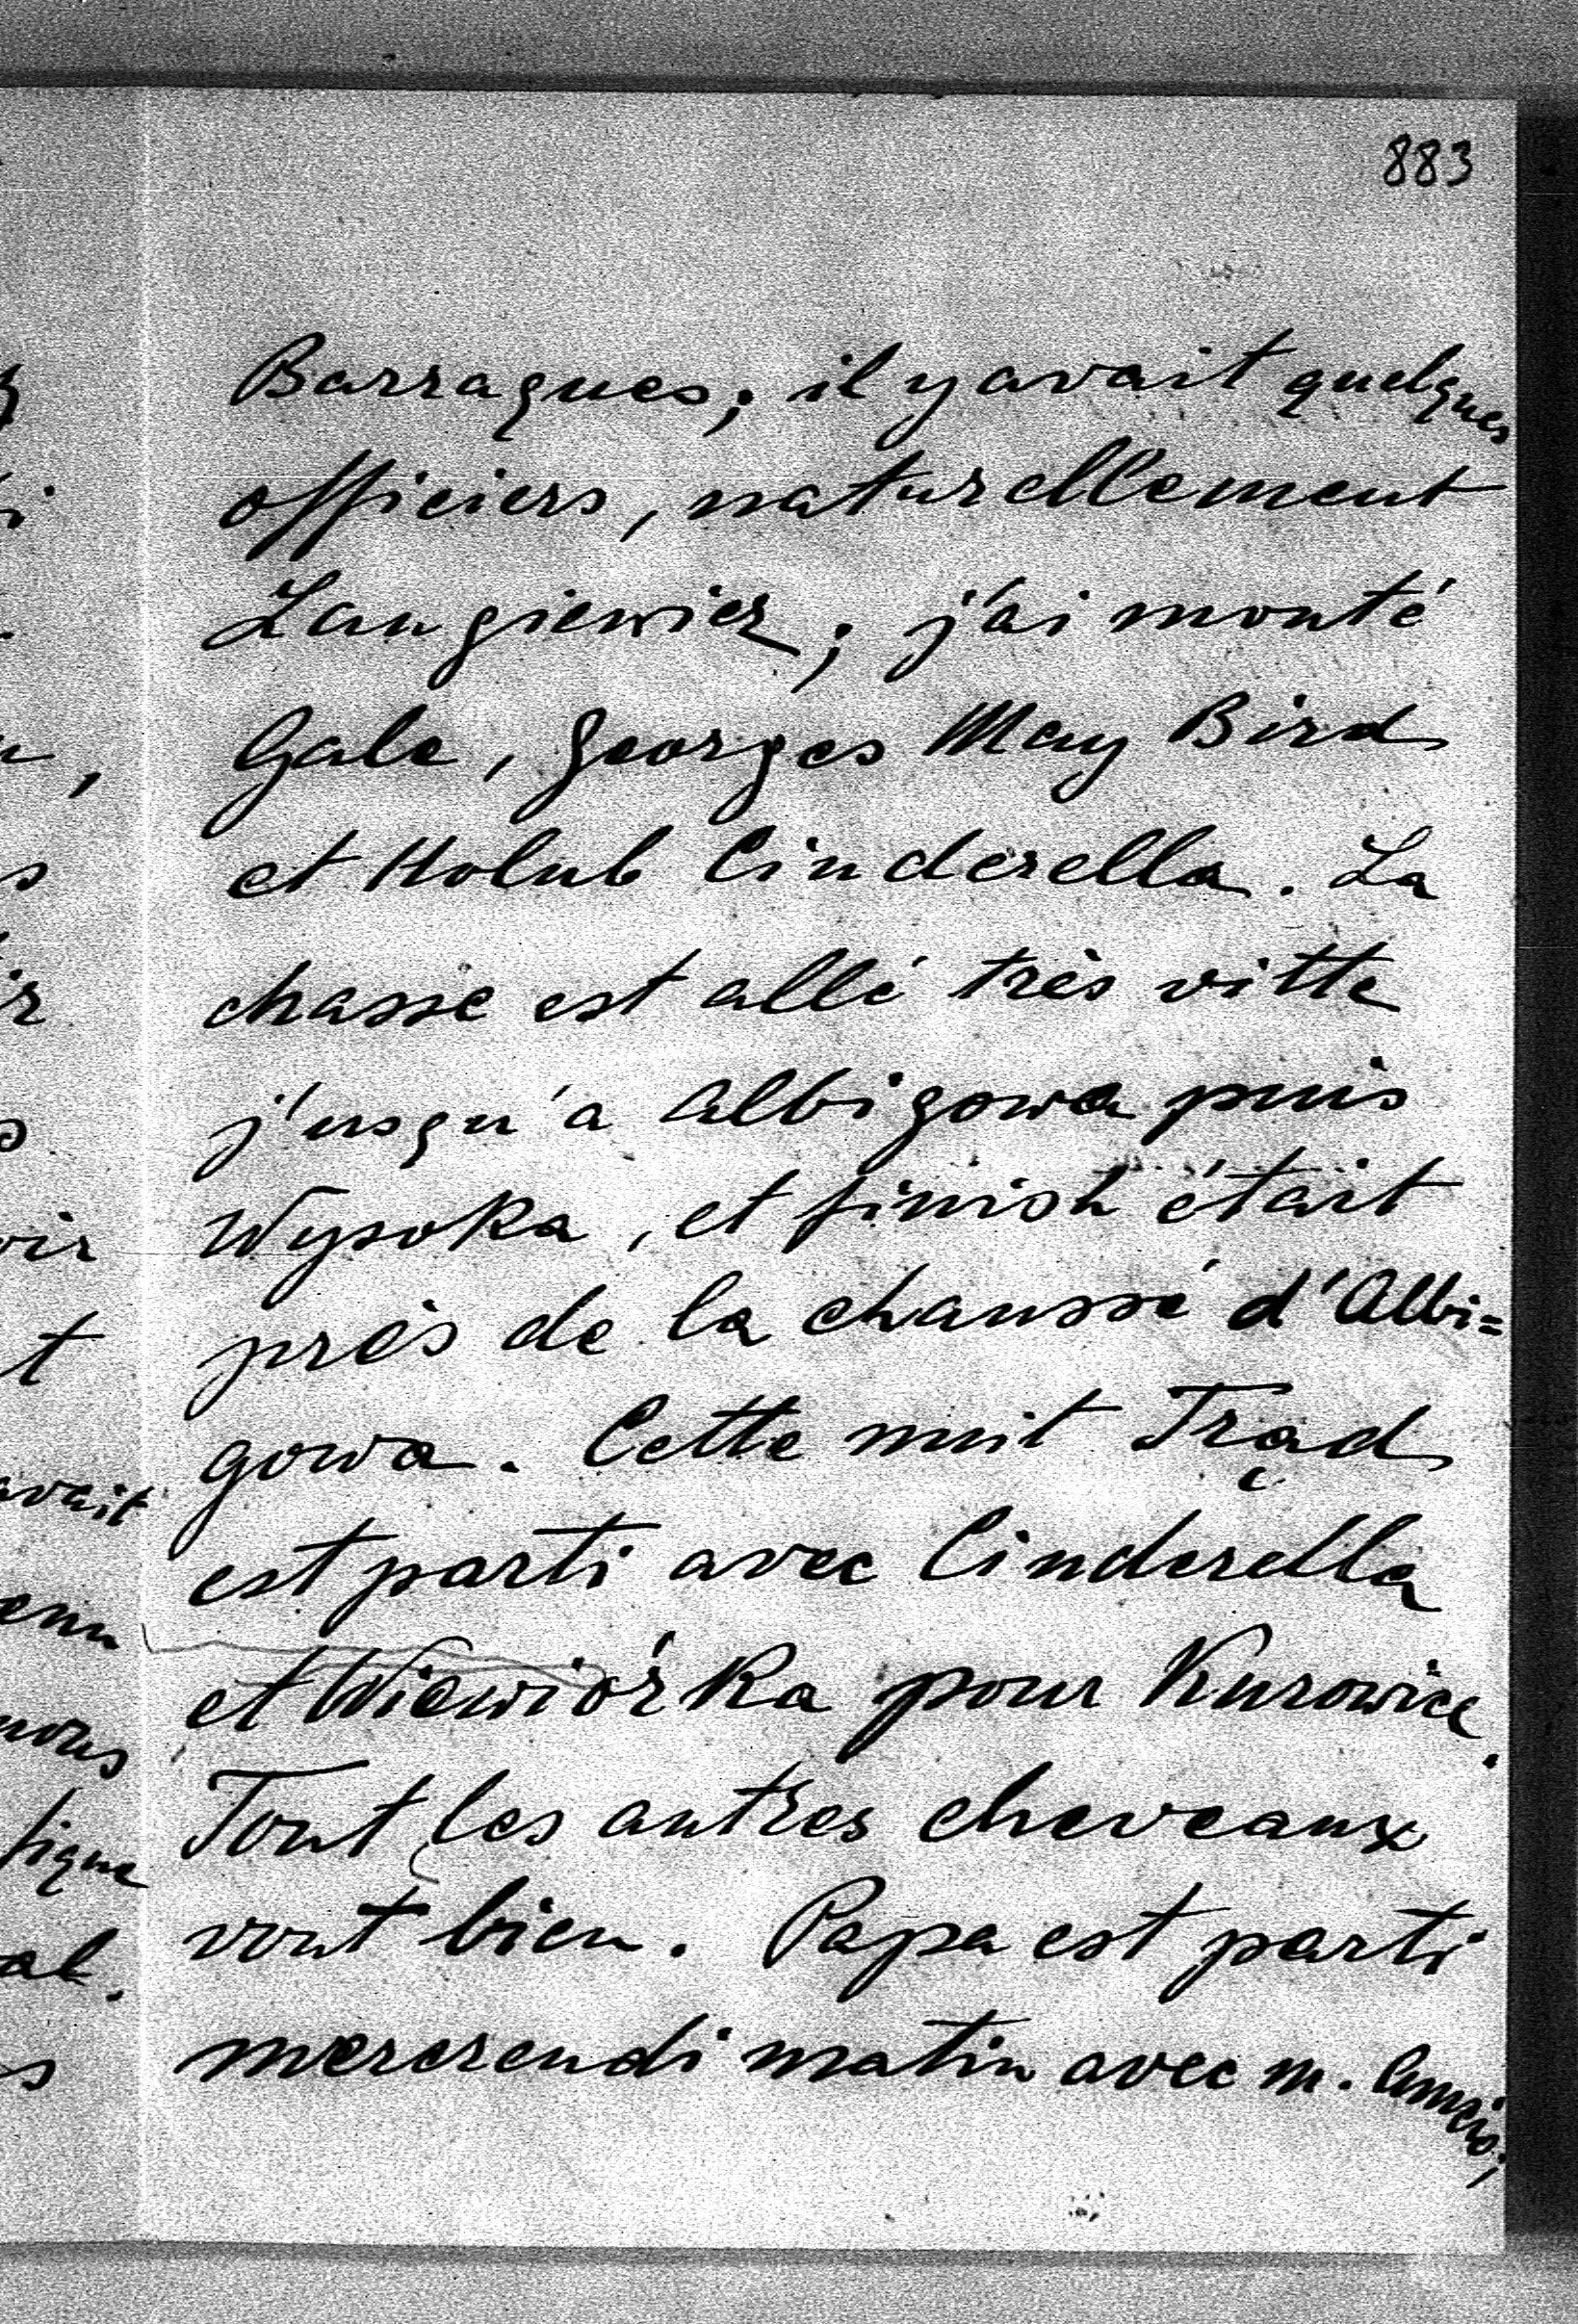 883
Barraques; il y avait quelques
officiers, naturellement
Langiewicz; j'ai monté
Gale, Georges May Bird
et Holub Cinderella. La
chasse est allé très vitte
j'usqu'a Albigowa puis
Wysoka, et finish était
près de la chaussé d'Albi=
gowa. Cette nuit Trąd
est parti avec Cinderella
et Wiewiórka pour Kurowice.
Tout les autres cheveaux
vont bien. Papa est parti
mercrendi matin avec M.
avait
t